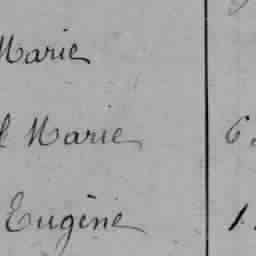 Marie
l Marie 6
Eugène 1